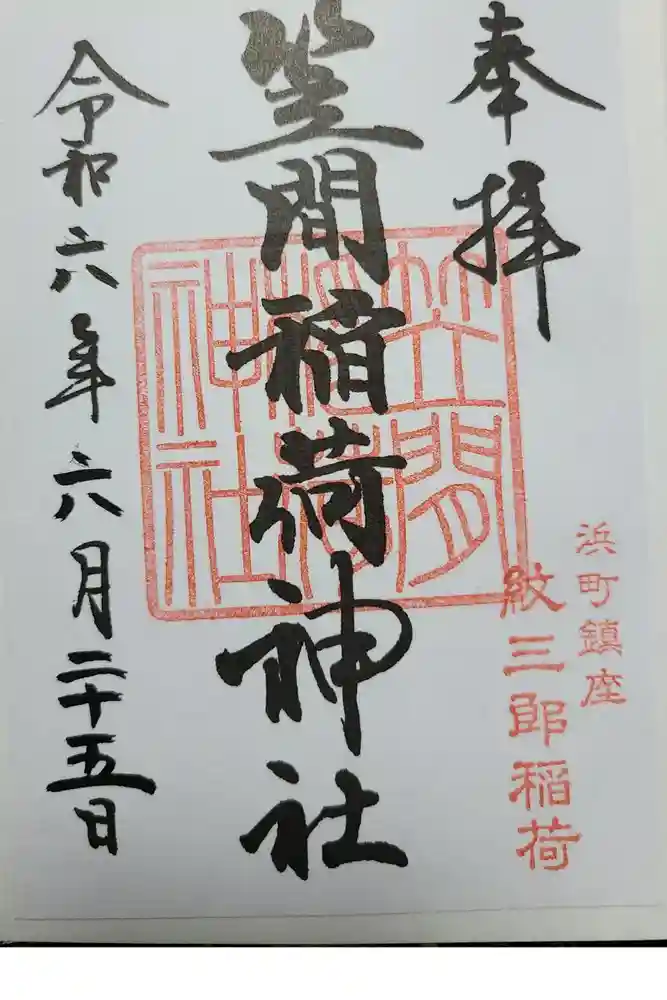 奉拝
浜町鎮座
紋三郎稲荷
笠間稲荷神社
笠間稲荷神社
令和六年六月二十五日